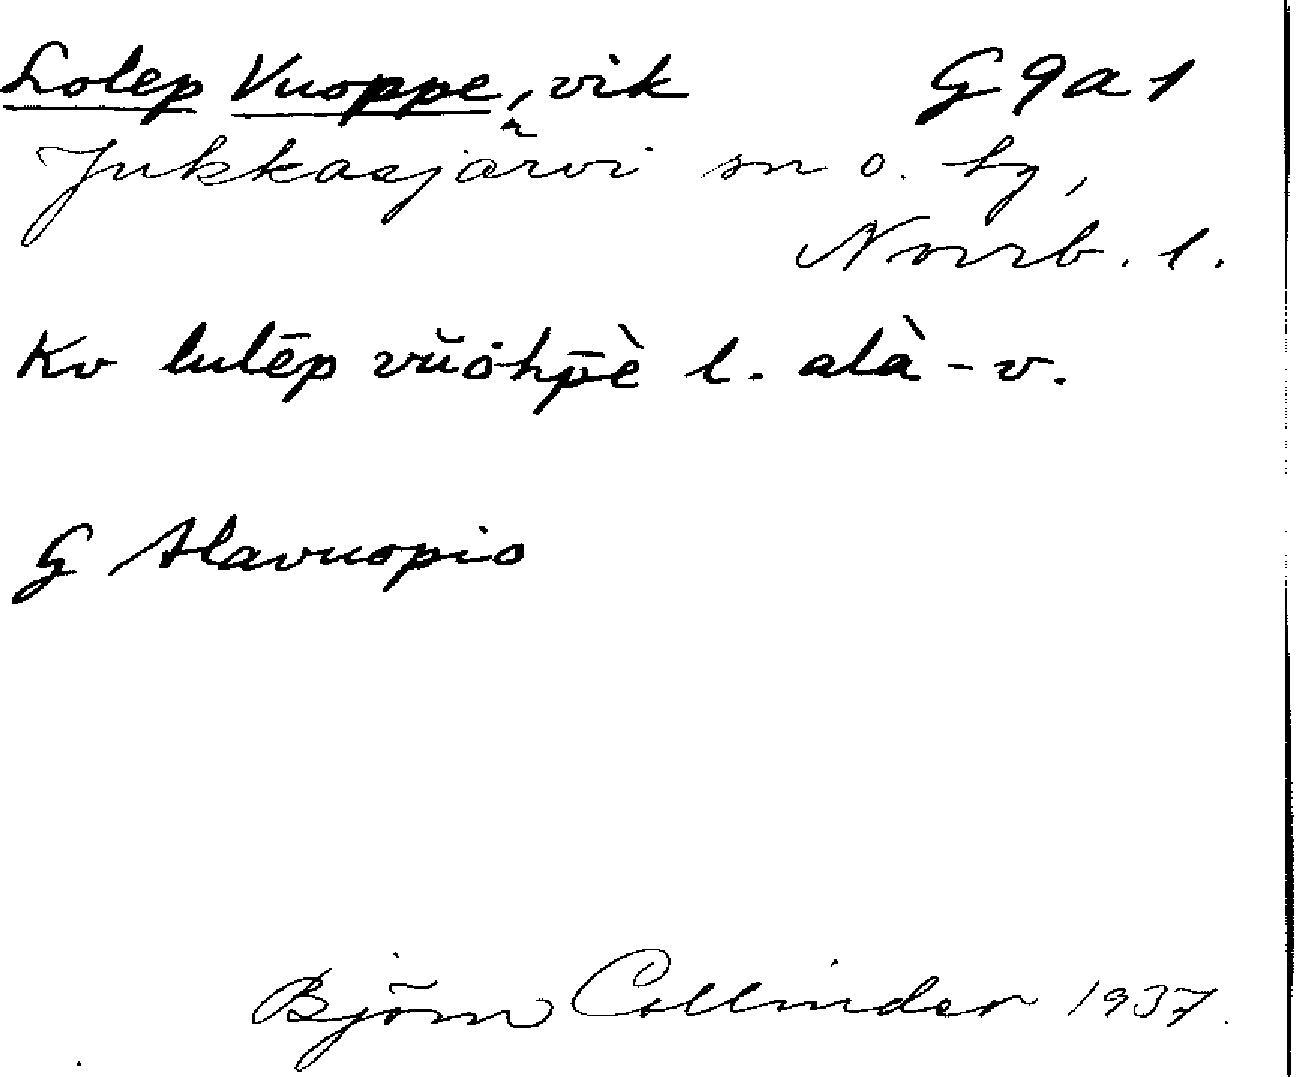 Lolep Vuoppe, vik G 9 a 1
Jukkasjärvi sn o. by,
Norrb. l.
Kv lulēp vŭȯhp̄ὲ l. alà-v.
G Alavuopio
Björn Collinder 1937.